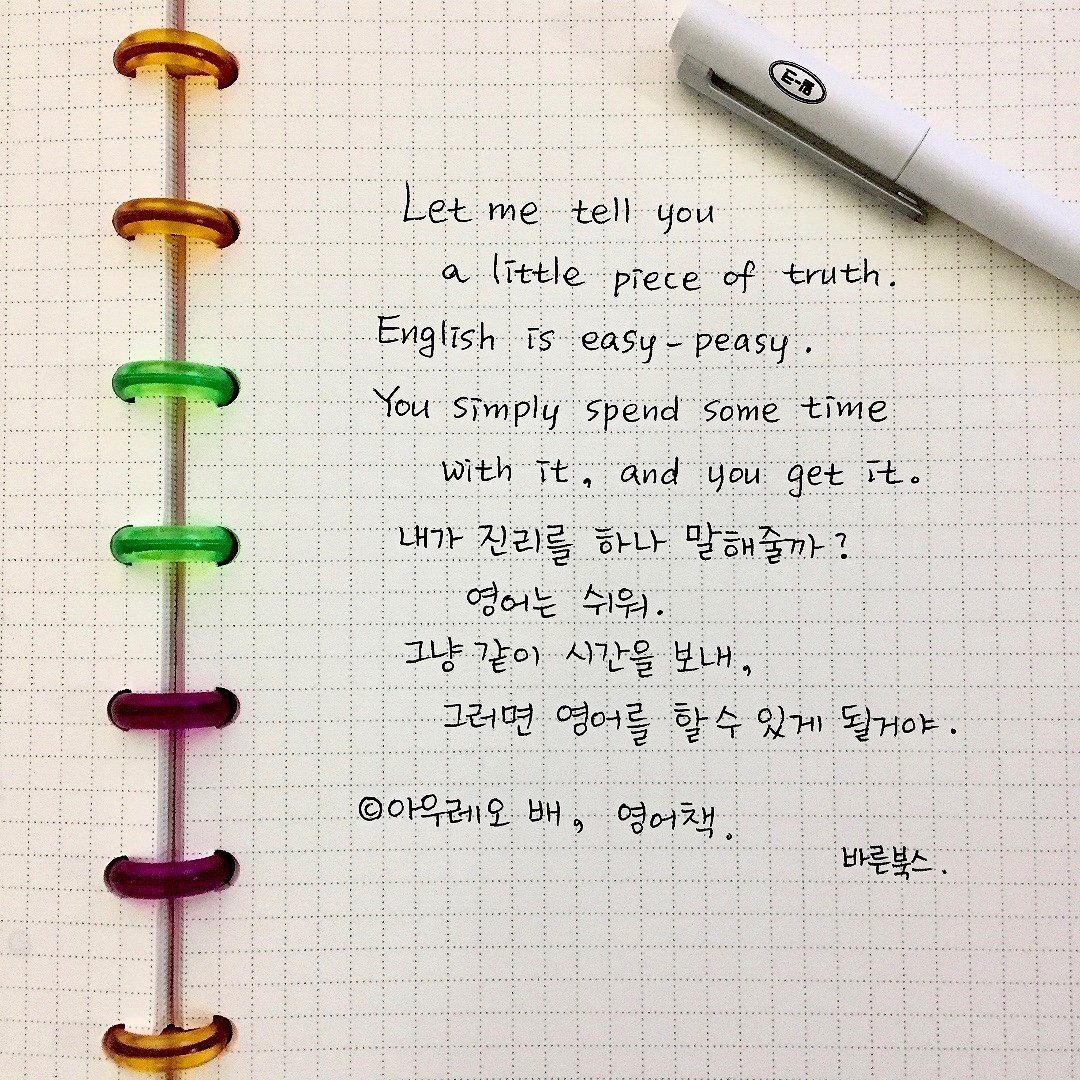 Let me tell you
a little piece of truth.
English is easy-peasy.
You simply spend some time
with it, and you get it.
내가 진리를 하나 말해줄까?
영어는 쉬워.
그냥 같이 시간을 보내,
그러면 영어를 할 수 있게 될거야.
©아우레오 배, 영어책.
바른북스.